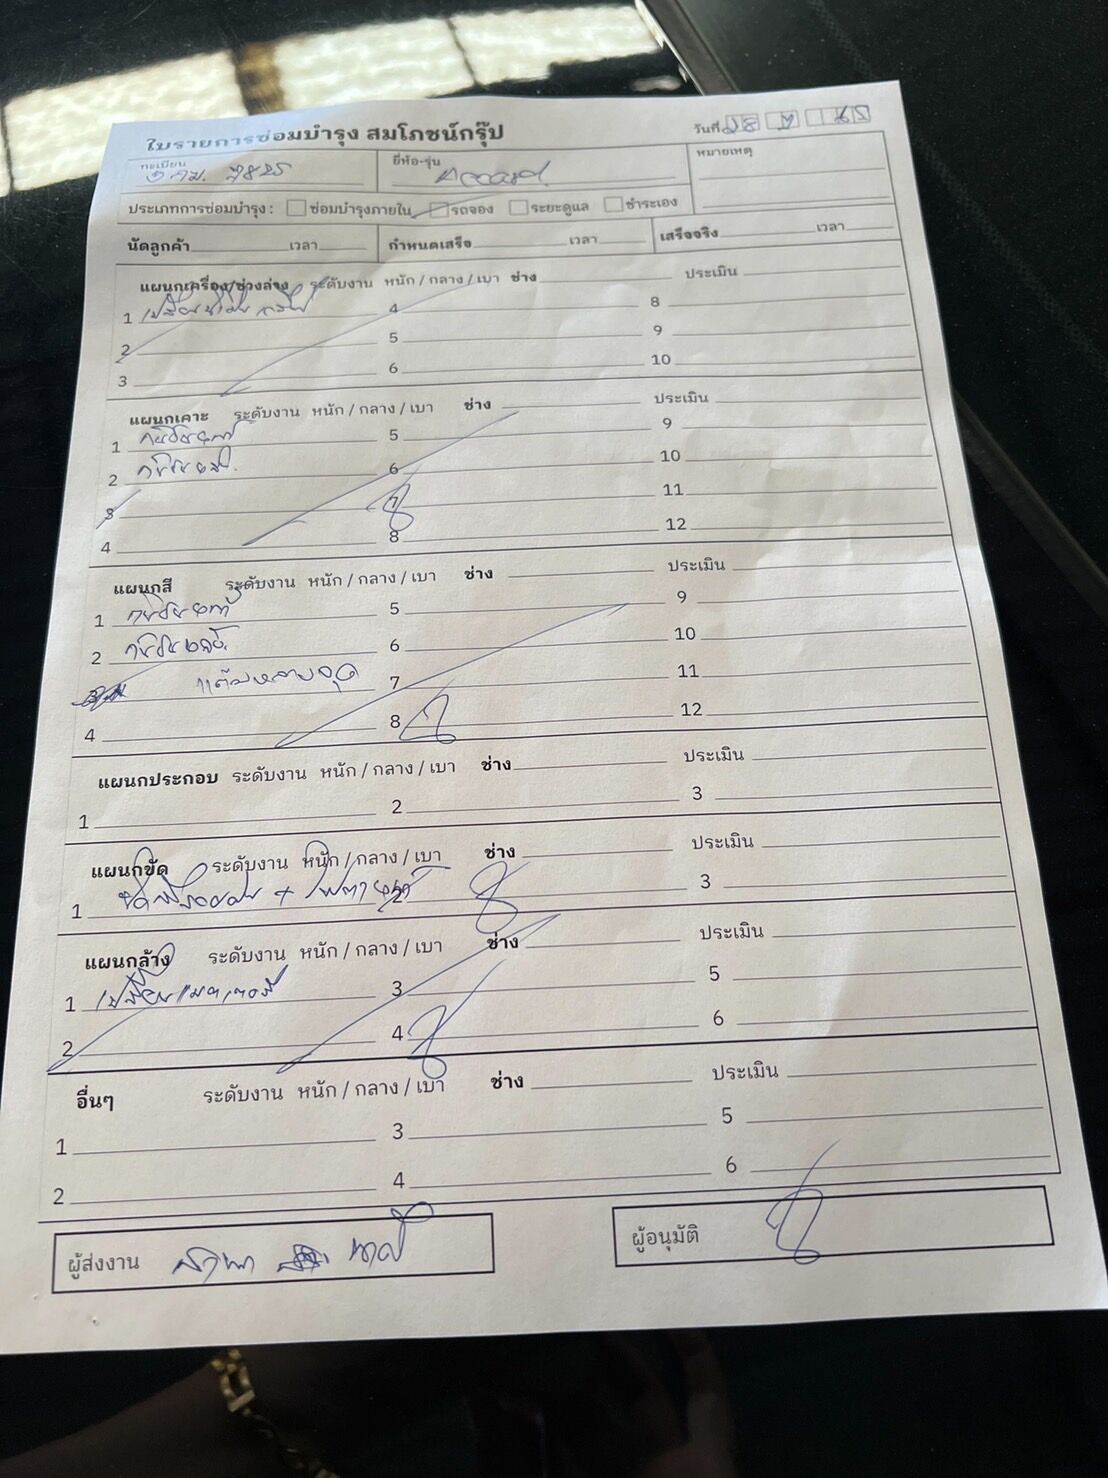 ใบรายการซ่อมบำรุง สมโภชน์กรุ๊ป
วันที่ 28
ทะเบียน
ยี่ห้อ-รุ่น
หมายเหตุ
ประเภทการซ่อมบำรุง : ซ่อมบำรุงภายใน รถจอง ระยะดูแล ชำระเอง
นัดลูกค้า เวลา กำหนดเสร็จ เวลา เสร็จจริง เวลา
แผนกเครื่อง/ช่วงล่าง ระดับงาน หนัก / กลาง / เบา ช่าง ประเมิน
1 เปลี่ยนน้ำมัน 4 8
2 5 9
3 6 10
แผนกเคาะ ระดับงาน หนัก / กลาง / เบา ช่าง ประเมิน
1 กันชนหน้า 5 9
2 กันชนหลัง 6 10
3 7 11
4 8 12
แผนกสี ระดับงาน หนัก / กลาง / เบา ช่าง ประเมิน
1 กันชนหน้า 5 9
2 กันชนหลัง 6 10
3 แต้มหลายจุด 7 11
4 8 12
แผนกประกอบ ระดับงาน หนัก / กลาง / เบา ช่าง ประเมิน
1 2 3
แผนกขัด ระดับงาน หนัก / กลาง / เบา ช่าง ประเมิน
1 + 2 3
แผนกล้าง ระดับงาน หนัก / กลาง / เบา ช่าง ประเมิน
1 เปลี่ยนแบตเตอรี่ 3 5
2 4 6
อื่นๆ ระดับงาน หนัก / กลาง / เบา ช่าง ประเมิน
1 3 5
2 4 6
ผู้ส่งงาน
ผู้อนุมัติ